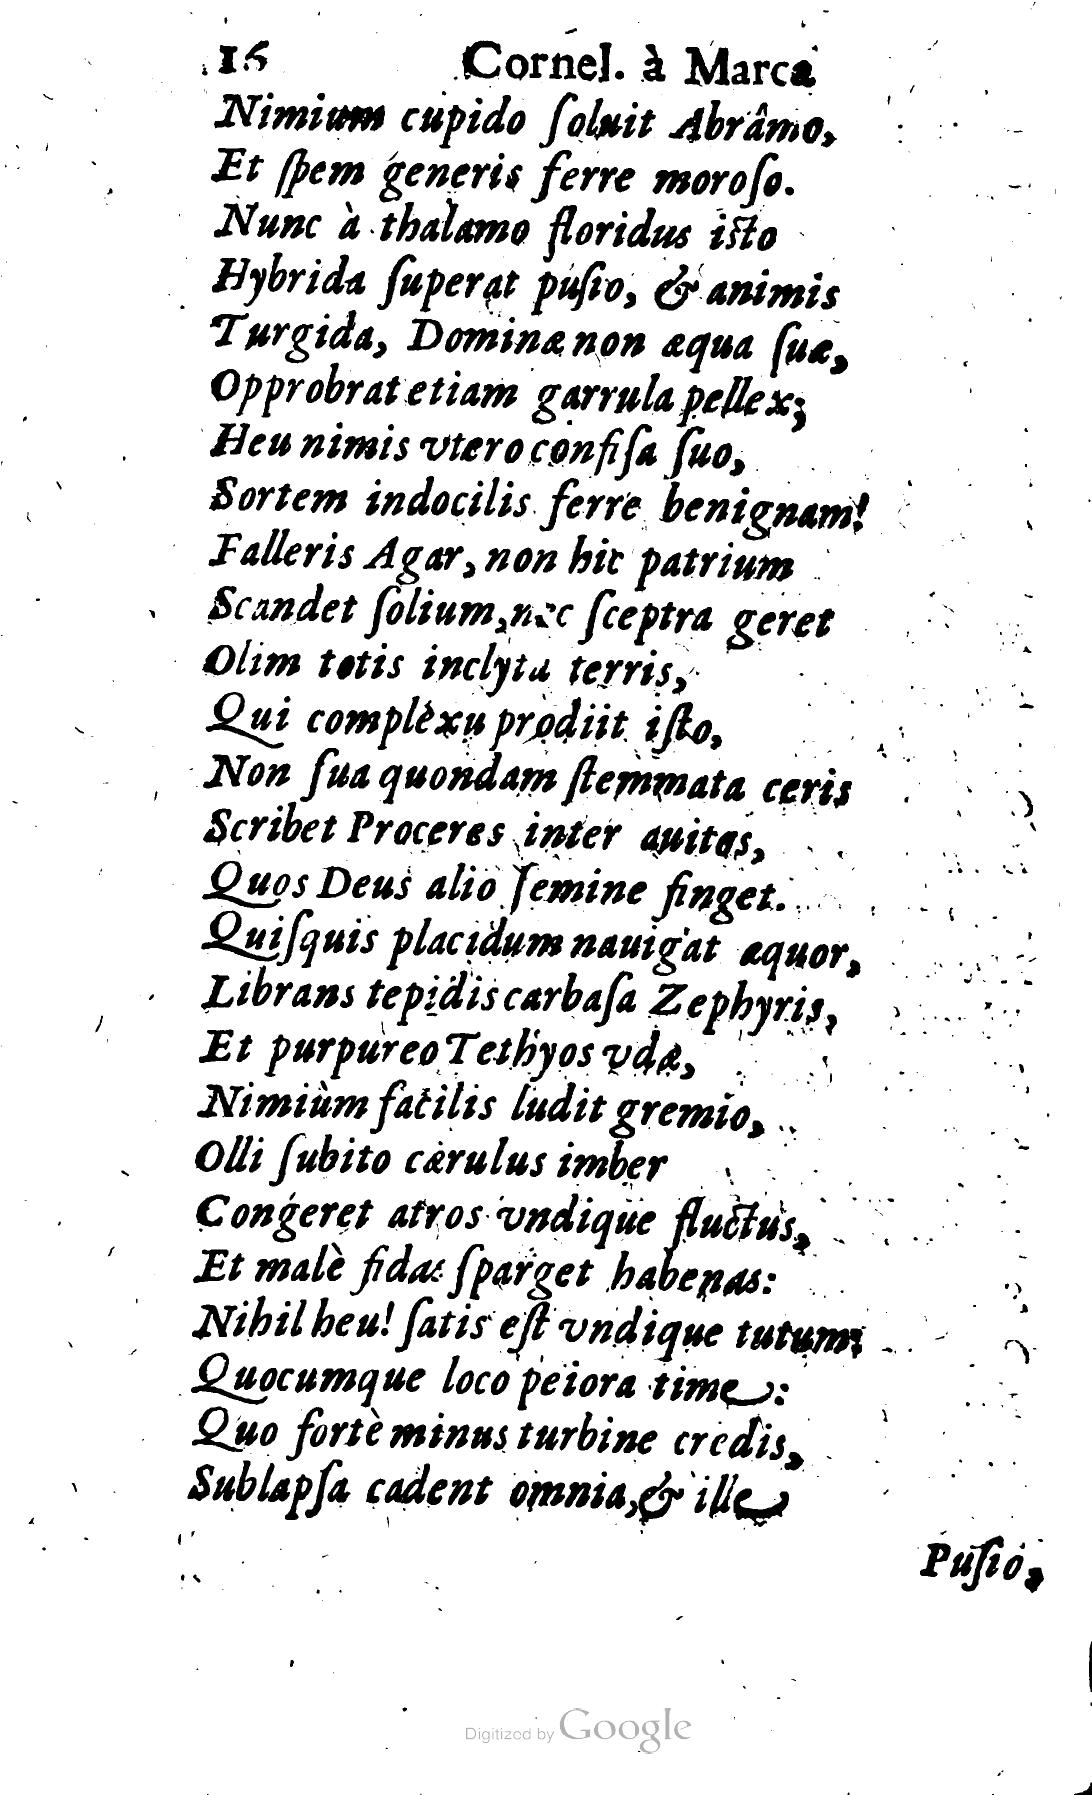 16 Cornel. à Marca
Nimium cupido ſoluit Abrâmo,
Et ſpem generis ferre moroſo.
Nunc à thalamo floridus iſto
Hybrida ſuperat puſio, & animis
Turgida, Dominæ non æqua ſuæ,
Opprobrat etiam garrula pellex;
Heu nimis vtero confiſa ſuo,
Sortem indocilis ferre benignam!
Falleris Agar, non hic patrium
Scandet ſolium, nec ſceptra geret
Olim totis inclyta terris,
Qui complexu prodiit iſto,
Non ſua quondam ſtemmata ceris
Scribet Proceres inter auitas,
Quos Deus alio ſemine finget.
Quiſquis placidum nauigat æquor,
Librans tepidis carbaſa Zephyris,
Et purpureo Tethyos vdæ,
Nimiùm facilis ludit gremio,
Olli ſubito cærulus imber
Congeret atros vndique fluctus,
Et malè fidas ſparget habenas:
Nihil heu! ſatis eſt vndique tutum:
Quocumque loco peiora time:
Quo fortè minus turbine credis,
Sublapſa cadent omnia, & ille
Puſio,
Digitized by Google